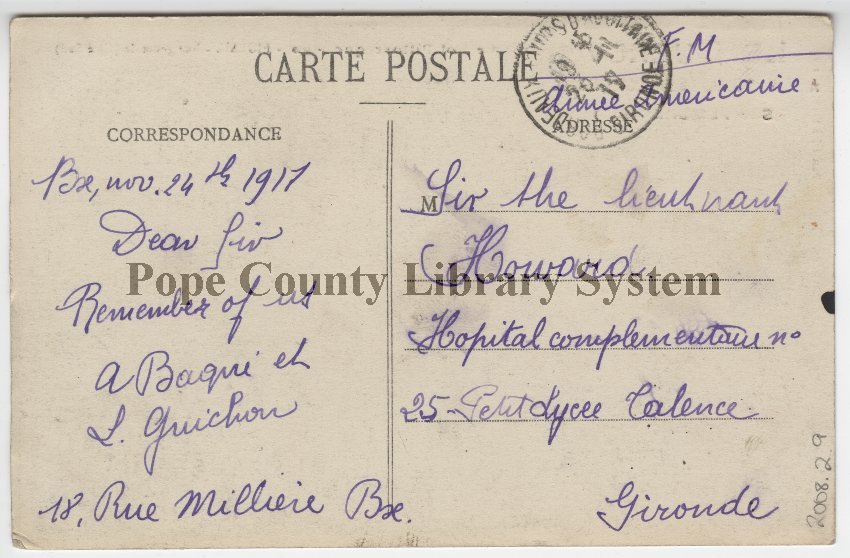 CARTE POSTALE
F. M
Armée américaine
CORRESPONDANCE
ADRESSE
Bx, nov. 24th 1917
Dear Sir
Remember of us
A Baqué et
L. Guichon
18, Rue Millière Bx.
M
Sir the lieutnant
Howard.
Hopital complementaire no
25 Petit Lycee Talence.
Gironde
Pope County Library System
2008.2.9
GIRONDE